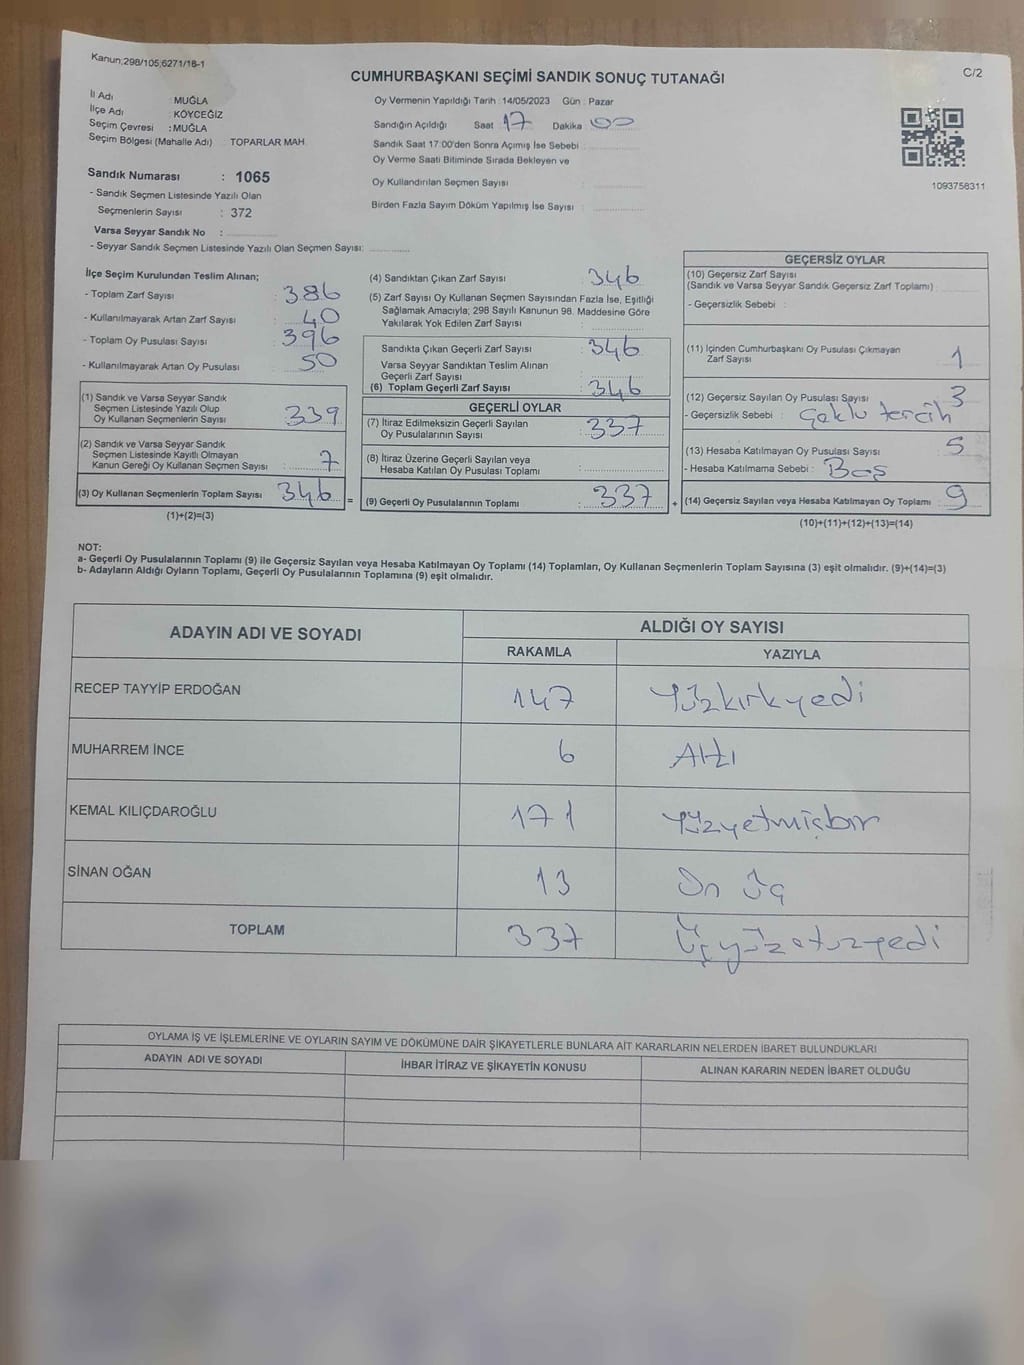 Kanun;298/105;6271/18-1
C/2
CUMHURBAŞKANI SEÇİMİ SANDIK SONUÇ TUTANAĞI
İl Adı : MUĞLA
İlçe Adı : KÖYCEĞİZ
Seçim Çevresi : MUĞLA
Seçim Bölgesi (Mahalle Adı) TOPARLAR MAH.
Sandık Numarası : 1065
- Sandık Seçmen Listesinde Yazılı Olan
Seçmenlerin Sayısı : 372
Varsa Seyyar Sandık No :
- Seyyar Sandık Seçmen Listesinde Yazılı Olan Seçmen Sayısı:
Oy Vermenin Yapıldığı Tarih : 14/05/2023 Gün : Pazar
Sandığın Açıldığı Saat 17 Dakika 00
Sandık Saat 17:00'den Sonra Açımış İse Sebebi :
Oy Verme Saati Bitiminde Sırada Bekleyen ve
Oy Kullandırılan Seçmen Sayısı :
Birden Fazla Sayım Döküm Yapılmış İse Sayısı :
1093758311
İlçe Seçim Kurulundan Teslim Alınan;
- Toplam Zarf Sayısı : 386
- Kullanılmayarak Artan Zarf Sayısı : 40
- Toplam Oy Pusulası Sayısı : 396
- Kullanılmayarak Artan Oy Pusulası : 50
(1) Sandık ve Varsa Seyyar Sandık
Seçmen Listesinde Yazılı Olup
Oy Kullanan Seçmenlerin Sayısı : 339
(2) Sandık ve Varsa Seyyar Sandık
Seçmen Listesinde Kayıtlı Olmayan
Kanun Gereği Oy Kullanan Seçmen Sayısı : 7
(3) Oy Kullanan Seçmenlerin Toplam Sayısı 346 =
(1)+(2)=(3)
(4) Sandıktan Çıkan Zarf Sayısı : 346
(5) Zarf Sayısı Oy Kullanan Seçmen Sayısından Fazla İse, Eşitliği
Sağlamak Amacıyla; 298 Sayılı Kanunun 98. Maddesine Göre
Yakılarak Yok Edilen Zarf Sayısı :
Sandıkta Çıkan Geçerli Zarf Sayısı : 346
Varsa Seyyar Sandıktan Teslim Alınan
Geçerli Zarf Sayısı :
(6) Toplam Geçerli Zarf Sayısı : 346
GEÇERLİ OYLAR
(7) İtiraz Edilmeksizin Geçerli Sayılan
Oy Pusulalarının Sayısı : 337
(8) İtiraz Üzerine Geçerli Sayılan veya
Hesaba Katılan Oy Pusulası Toplamı :
(9) Geçerli Oy Pusulalarının Toplamı : 337 +
GEÇERSİZ OYLAR
(10) Geçersiz Zarf Sayısı
(Sandık ve Varsa Seyyar Sandık Geçersiz Zarf Toplamı) :
- Geçersizlik Sebebi :
(11) İçinden Cumhurbaşkanı Oy Pusulası Çıkmayan
Zarf Sayısı 1
(12) Geçersiz Sayılan Oy Pusulası Sayısı 3
- Geçersizlik Sebebi : Çoklu tercih
(13) Hesaba Katılmayan Oy Pusulası Sayısı 5
- Hesaba Katılmama Sebebi : Boş
(14) Geçersiz Sayılan veya Hesaba Katılmayan Oy Toplamı : 9
(10)+(11)+(12)+(13)=(14)
NOT:
a- Geçerli Oy Pusulalarının Toplamı (9) ile Geçersiz Sayılan veya Hesaba Katılmayan Oy Toplamı (14) Toplamları, Oy Kullanan Seçmenlerin Toplam Sayısına (3) eşit olmalıdır. (9)+(14)=(3)
b- Adayların Aldığı Oyların Toplamı, Geçerli Oy Pusulalarının Toplamına (9) eşit olmalıdır.
ADAYIN ADI VE SOYADI ALDIĞI OY SAYISI
RAKAMLA YAZIYLA
RECEP TAYYİP ERDOĞAN 147 Yüzkırkyedi
MUHARREM İNCE 6 Altı
KEMAL KILIÇDAROĞLU 171 Yüzyetmişbir
SİNAN OĞAN 13 On üç
TOPLAM 337 Üçyüzotuzyedi
OYLAMA İŞ VE İŞLEMLERİNE VE OYLARIN SAYIM VE DÖKÜMÜNE DAİR ŞİKAYETLERLE BUNLARA AİT KARARLARIN NELERDEN İBARET BULUNDUKLARI
ADAYIN ADI VE SOYADI İHBAR İTİRAZ VE ŞİKAYETİN KONUSU ALINAN KARARIN NEDEN İBARET OLDUĞU